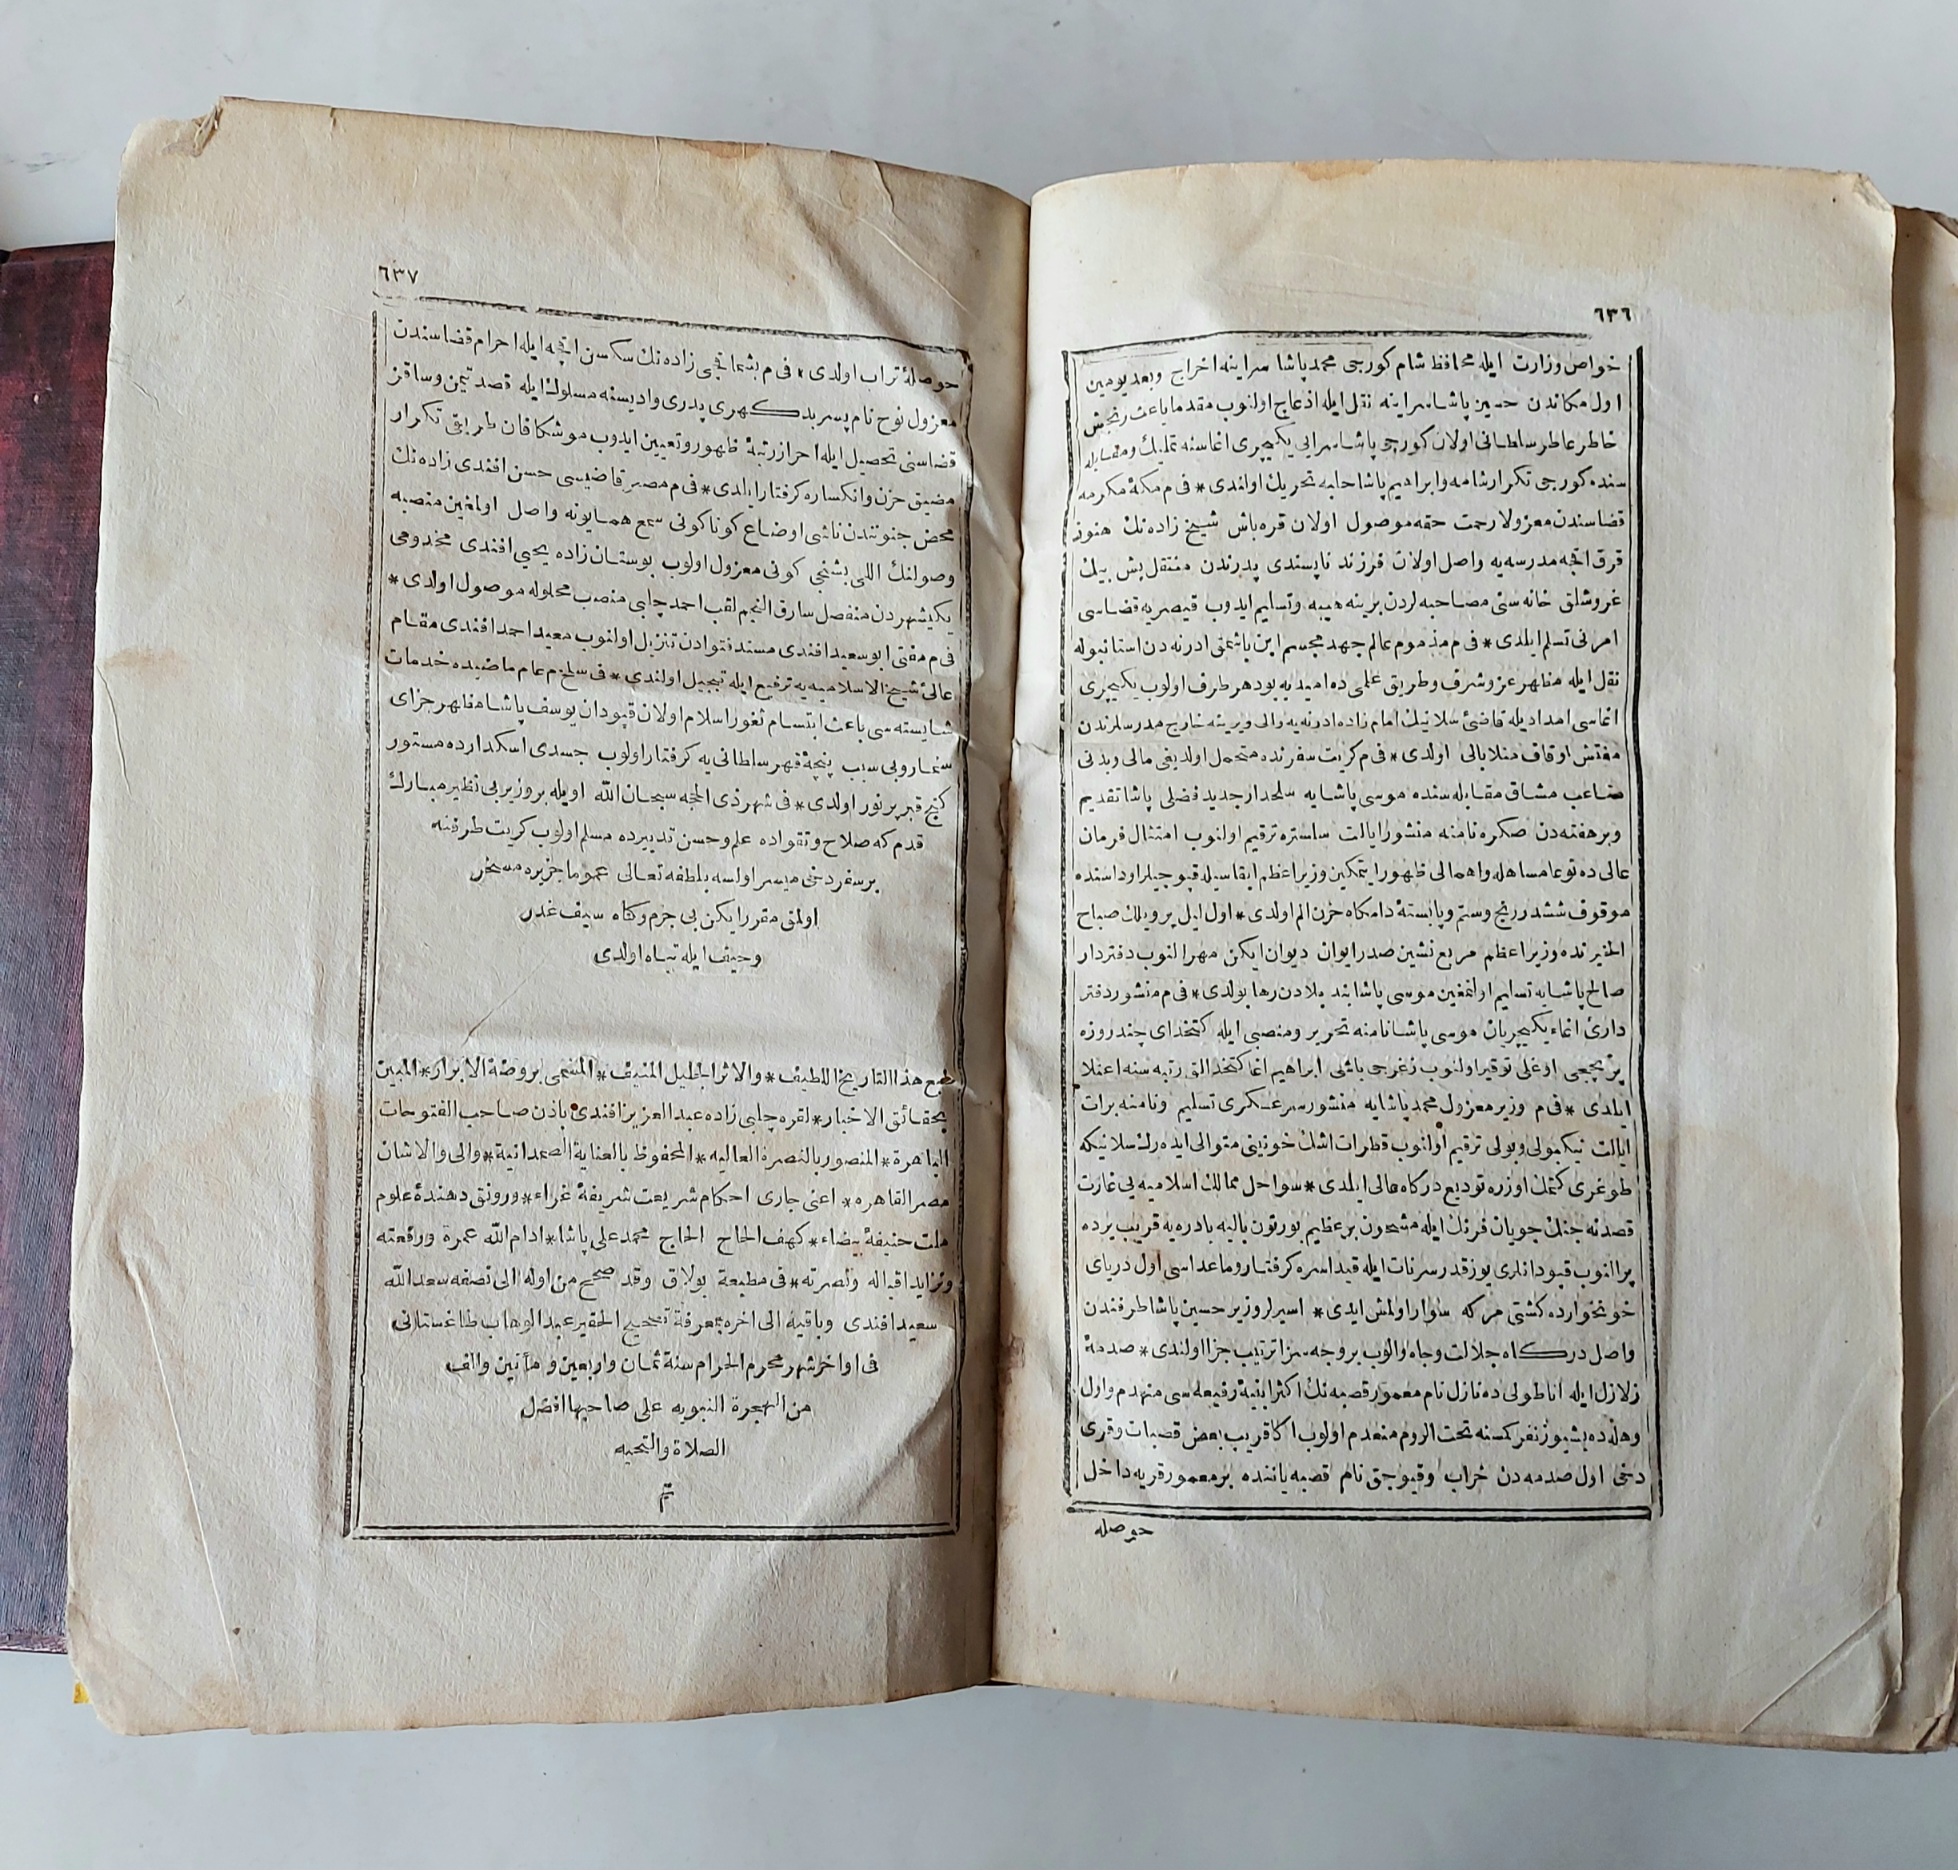 ٦٣٦
خواص وزارت ایله محافظ شام کورجی محمد پاشا سراینه اخراج وبعد یومین
اول مکاندن حسین پاشا سراینه نقل ایله ازعاج اولنوب مقدما باعث رنجش
خاطر عاطر سلطانی اولان کورجی پاشا سرایی یکیچری اغاسنه تملیك ومقابله
سنده کورجی تکرار شامه وابراهیم پاشا حلبه تحریك اولندی * فی م مکۀ مکرمه
قضاسندن معزولا رحمت حقه موصول اولان قره باش شیخ زاده نك هنوز
قرق اقچه مدرسه یه واصل اولان فرزند ناپسندی پدرندن منتقل بش بیك
غروشلق خانه سنی مصاحبه لردن برینه هبه وتسلیم ایدوب قیصریه قضاسی
امرنی تسلم ایلدی * فی م مذموم عالم جهد مجسم ابن باشمق ادرنه دن استانبوله
نقل ایله مظهر عز وشرف وطریق علمی ده امید به بود هر طرف اولوب یکیچری
اغاسی امدادیله قاضئ سلانیك امام زاده ادرنه یه والی ویرینه خارج مدرسلرندن
مفتش اوقاف منلا بالی اولدی * فی م کریت سفرنده متحمل اولدیغی مالی وبدنی
متاعب مشاق مقابله سنده موسی پاشایه سلحدار جدید فضلی پاشا تقدیم
وبر هفته دن صکره نامنه منشور ایالت سلستره ترقیم اولنوب امتثال فرمان
عالی ده نوعا مساهله واهمالی ظهور ایتمکین وزیر اعظم ابقاسیله قپوجیلر اوداسنده
موقوف ششدر رنج وستم وپابستۀ دامکاه حزن الم اولدی * اول لیل پرویلك صباح
الخیرنده وزیر اعظم مربع نشین صدر ایوان دیوان ایکن مهر النوب دفتردار
صالح پاشایه تسلیم اولنمغین موسی پاشا بند بلادن رها بولدی * فی م منشور دفتر
دارئ اغاء یکیچریان موسی پاشا نامنه تحریر ومنصبی ایله کتخدای چند روزه
اوغلی توقیر اولنوب زغرجی باشی ابراهیم اغا کتخدالق رتبه سنه اعتلا
ایلدی * فی م وزیر معزول محمد پاشایه منشور سر عسکری تسلیم ونامنه برات
ایالت نیکبولی وبولی ترقیم اولنوب قطرات اشك خونینی متوالی ایدرك سلانیکه
طوغری کتمك اوزره تودیع درکاه عالی ایلدی * سواحل ممالك اسلامیه یی غارت
قصدنه جنك جویان فرنك ایله مشحون بر عظیم بورتون بالیه بادره یه قریب یرده
النوب قپودانلری یوز قدر سرنات ایله قید اسره کرفتار وما عداسی اول دریای
خونخوارده کشتی مرکه سوار اولمش ایدی * اسیرلر وزیر حسین پاشا طرفندن
واصل درکاه جلالت وجاه والوب بر وجه سزا ترتیب جزا اولندی * صدمۀ
زلازل ایله اناطولی ده نازل نام معمور قصبه نك اکثر ابنیۀ رفیعه سی منهدم واول
وهله ده بشیوز نفر کمسنه تحت الردم منعدم اولوب اکا قریب بعض قصبات وقری
دخی اول صدمه دن خراب وقپوجق نام قصبه یاننده بر معمور قریه داخل
حوصله
٦٣٧
حوصلۀ تراب اولدی * فی م بشماقچی زاده نك سکسن اقچه ایله احرام قضاسندن
معزول نوح نام پسر بدکهری پدری وادیسنه مسلوك ایله قصد تیمن وساقز
قضاسنی تحصیل ایله احراز رتبۀ ظهور وتعیین ایدوب موشکافان طریق تکرار
مضیق حزن وانکساره کرفتار ایلدی * فی م مصر قاضیسی حسن افندی زاده نك
محض جنونندن ناشی اوضاع کوناکونی سمع همایونه واصل اولمغین منصبه
وصولنك اللی بشنجی کونی معزول اولوب بوستان زاده یحیی افندی مخدومی
یکیشهردن منفصل سارق النجم لقب احمد چلبی منصب محلوله موصول اولدی *
فی م مفتی ابو سعید افندی مسند فتوادن تنزیل اولنوب معید احمد افندی مقام
عالئ شیخ الاسلامیه یه ترفیع ایله تبجیل اولندی * فی سلخ م عام ماضیده خدمات
شایسته سی باعث ابتسام ثغور اسلام اولان قپودان یوسف پاشا مظهر جزای
سنمار وبی سبب پنجۀ قهر سلطانی یه کرفتار اولوب جسدی اسکدارده مستور
کنج قبر پر نور اولدی * فی شهر ذی الحجه سبحان الله اویله بر وزیر بی نظیر مبارك
قدم که صلاح وتقواده علم وحسن تدبیرده مسلم اولوب کریت طرفنه
بر سفر دخی میسر اولسه بلطفه تعالی عموما جزیره مسخر
اولمق مقرر ایکن بی جرم وکناه سیف غدر
وحیف ایله تباه اولدی
طبع هذا التاریخ اللطیف * والاثر الجلیل المنیف * المسمی بروضة الابرار * المبین
بحقائق الاخبار * لقره چلبی زاده عبد العزیز افندی باذن صاحب الفتوحات
الباهرة * المنصور بالنصرة العالیه * المحفوظ بالعنایة الصمدانیة * والی والاشان
مصر القاهره * اعنی جاری احکام شریعت شریفۀ غراء * ورونق دهندۀ علوم
ملت حنیفۀ بیضاء * کهف الحاج الحاج محمد علی پاشا * ادام الله عمره ورفعته
وتزاید اقباله ونصرته * فی مطبعة بولاق وقد صحح من اوله الی نصفه سعد الله
سعید افندی وباقیه الی اخره بمعرفة تصحیح الحقیر عبد الوهاب طاغستانی
فی اواخر شهر محرم الحرام سنة ثمان واربعین ومأتین والف
من الهجرة النبویه علی صاحبها افضل
الصلاة والتحیه
تم